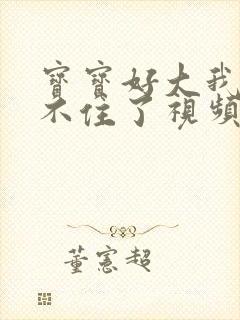 寶寶好大我
不住了視頻
董憲超